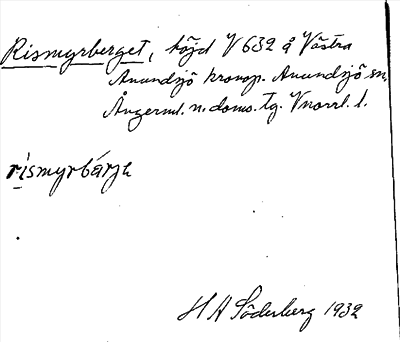 Rismyrberget, höjd V 632 å Västra
Anundsjö kronop. Anundsjö sn,
Ångerml. n. doms. tg. Vnorrl. l.
rismyrbárjh
H A Söderberg 1932